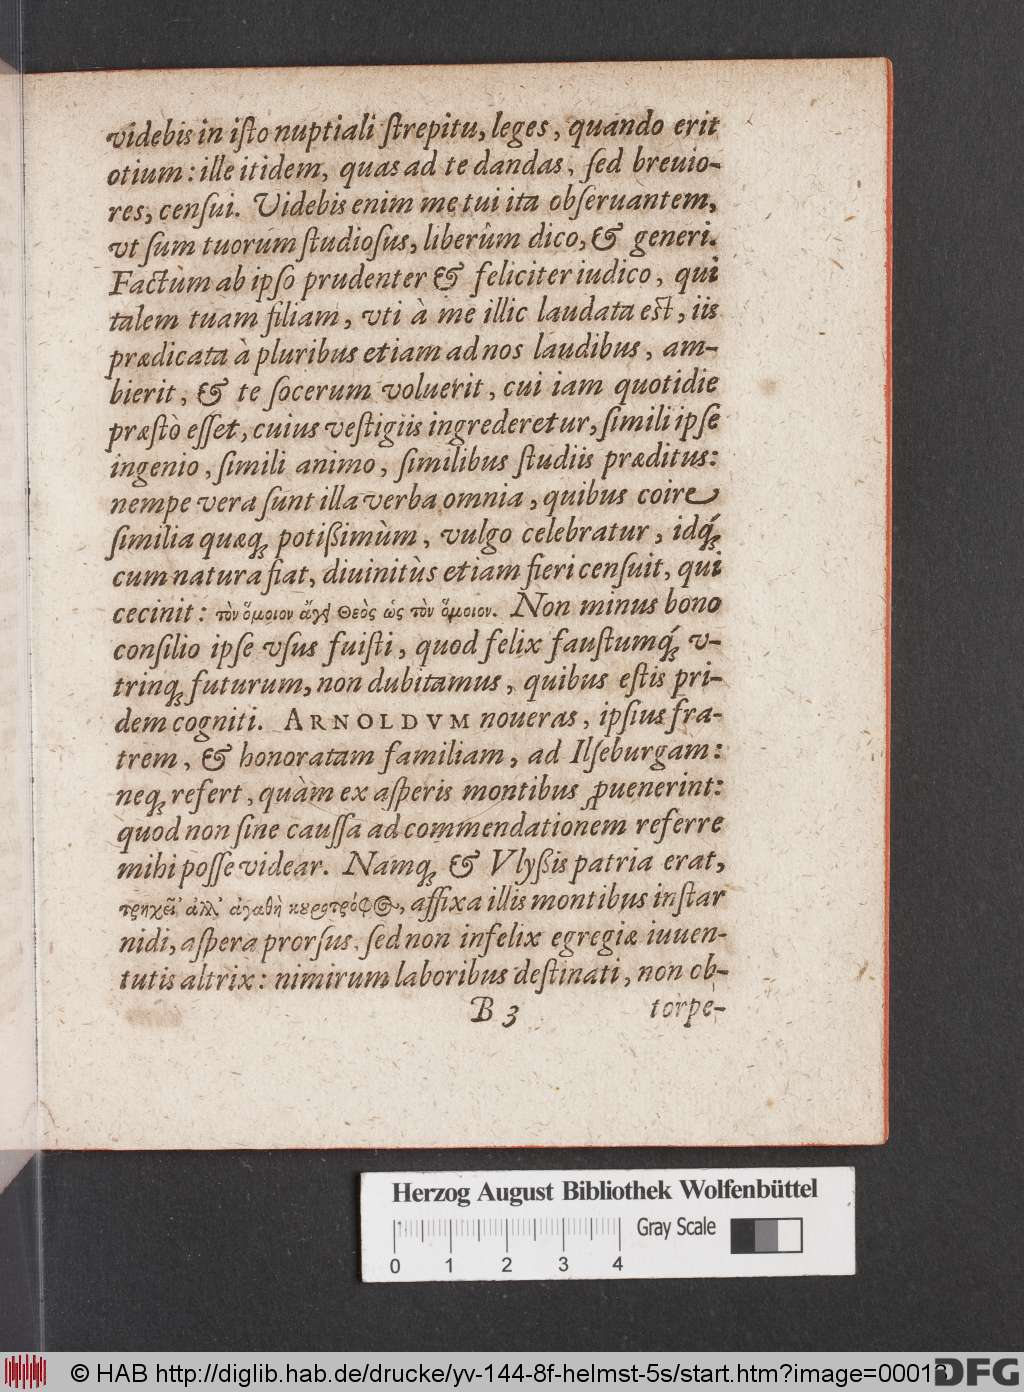 videbis in iſto nuptiali ſtrepitu, leges, quando erit
otium: ille itidem, quas ad te dandas, ſed breuio-
res, cenſui. Videbis enim me tui ita obſeruantem,
vt ſum tuorum ſtudioſus, liberûm dico, & generi.
Factùm ab ipſo prudenter & feliciter iudico, qui
talem tuam filiam, vti à me illic laudata eſt, iis
prædicata à pluribus etiam ad nos laudibus, am-
bierit, & te ſocerum voluerit, cui iam quotidie
præſtò eſſet, cuius veſtigiis ingrederetur, ſimili ipſe
ingenio, ſimili animo, ſimilibus ſtudiis præditus:
nempe vera ſunt illa verba omnia, quibus coire
ſimilia quæq; potißimùm, vulgo celebratur, idq́;
cum natura fiat, diuinitùs etiam fieri cenſuit, qui
cecinit: τὸν ὅμοιον ἄγει Θεὸς ὡς τὸν ὅμοιον. Non minus bono
conſilio ipſe vſus fuiſti, quod felix fauſtumq́; v-
trinq; futurum, non dubitamus, quibus eſtis pri-
dem cogniti. ARNOLDVM noueras, ipſius fra-
trem, & honoratam familiam, ad Ilſeburgam:
neq; refert, quàm ex aſperis montibus ꝓuenerint:
quod non ſine cauſſa ad commendationem referre
mihi poſſe videar. Namq; & Vlyßis patria erat,
τρηχεῖ' ἀλλ' ἀγαθὴ κουροτρόφος, affixa illis montibus inſtar
nidi, aſpera prorſus, ſed non infelix egregiæ iuuen-
tutis altrix: nimirum laboribus deſtinati, non ob-
B 3 torpe-
Herzog August Bibliothek Wolfenbüttel
Gray Scale
0 1 2 3 4
© HAB http://diglib.hab.de/drucke/yv-144-8f-helmst-5s/start.htm?image=00013
DFG